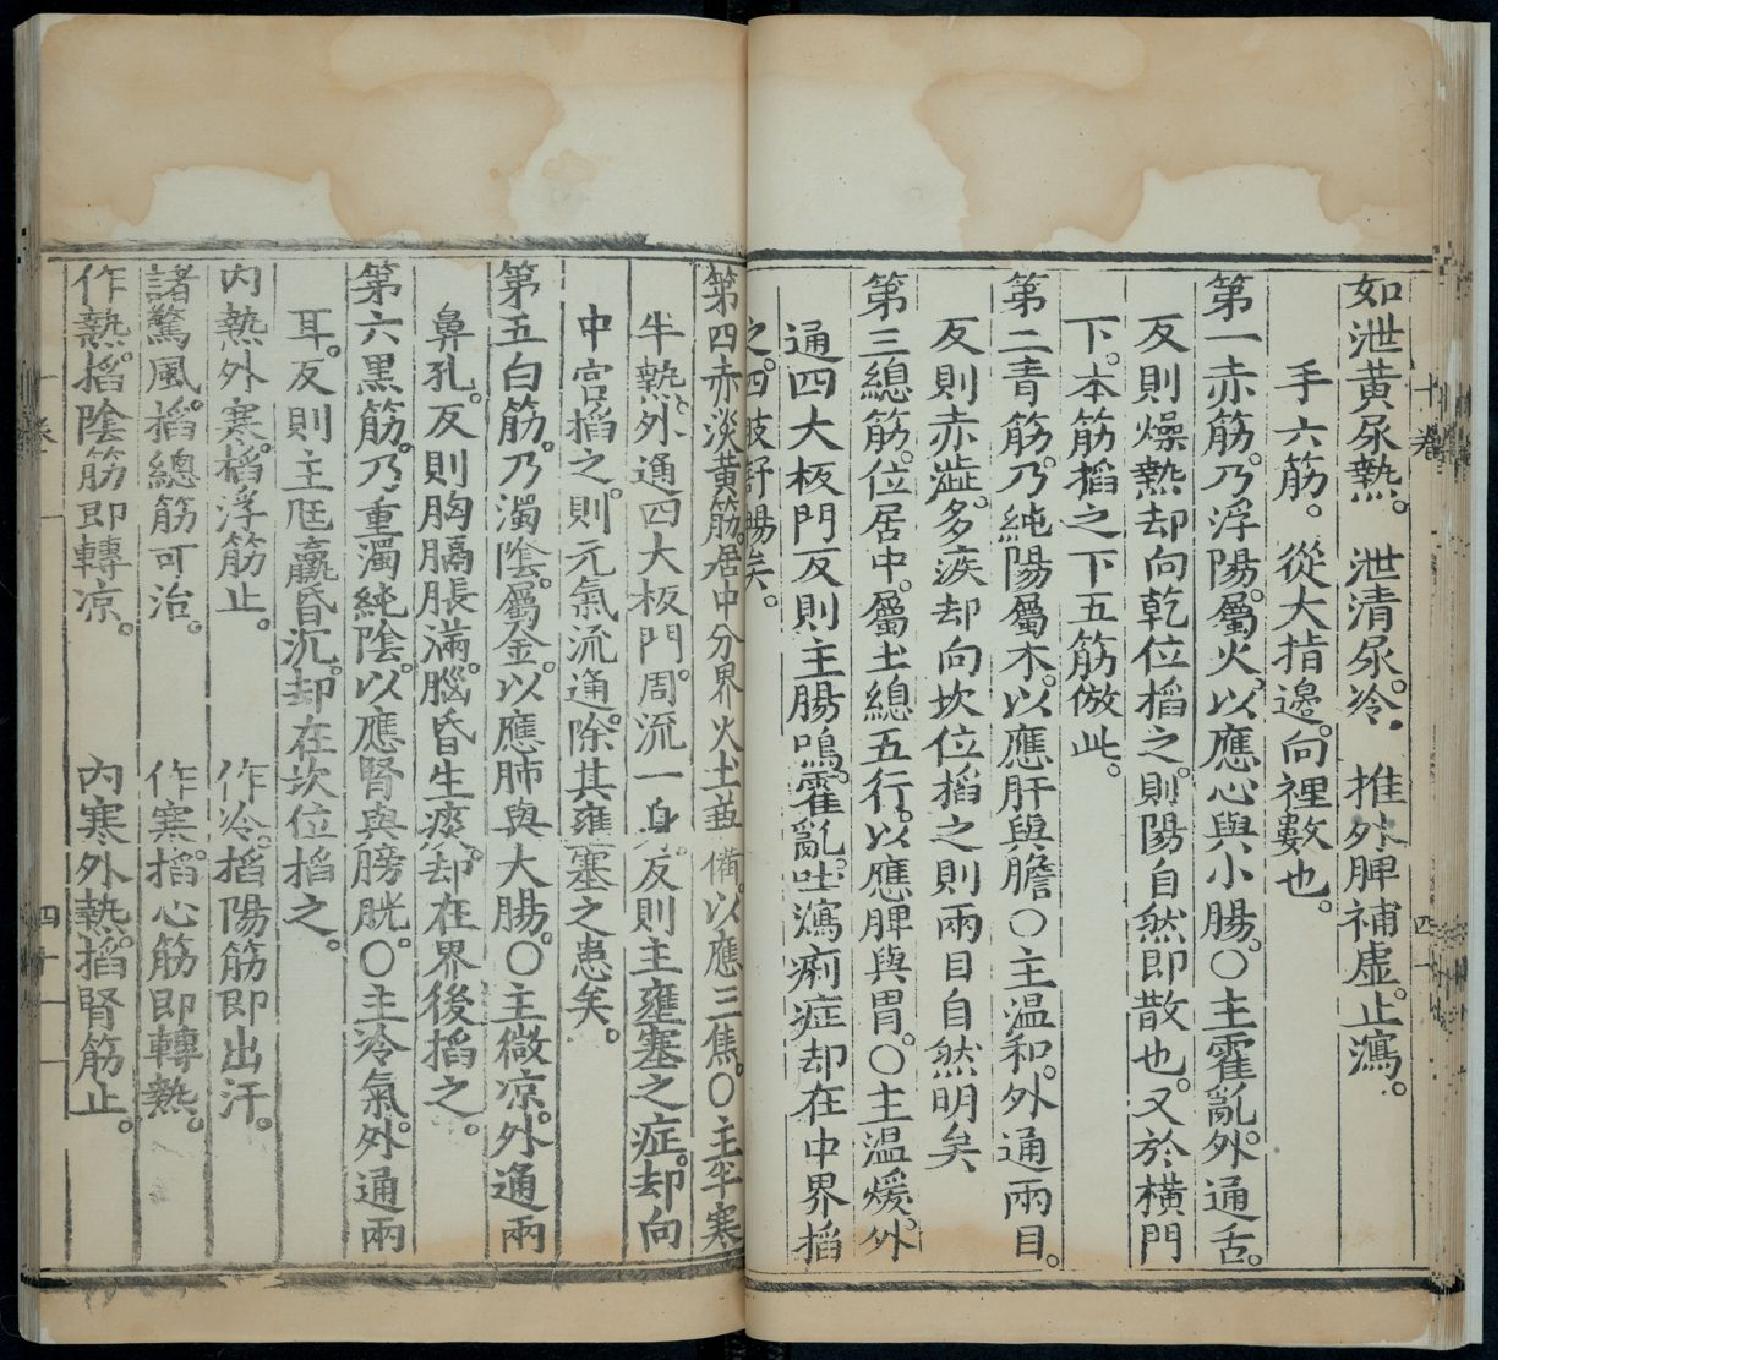 如泄黃尿熱。泄清尿冷。推外脾補虛。止瀉。
手六筋。從大指邊。向裡數也。
第一赤筋。乃浮陽。屬火。以應心與小腸。○主霍亂。外通舌。
反則燥熱却向乾位搯之。則陽自然即散也。又於橫門
下。本筋搯之下五筋倣此。
第二青筋。乃純陽屬木。以應肝與膽○主温和。外通兩目。
反則赤澁。多淚却向坎位搯之則兩目自然明矣
第三總筋。位居中。屬土總五行。以應脾與胃。○主温煖。外
通四大板門反則主腸鳴。霍亂。吐瀉痢症却在中界搯
之。四肢舒暢矣。
第四赤淡黃筋。居中分界火土並備。以應三焦。○主半寒
半熱。外通四大板門。周流一身。反則主壅塞之症。却向
中宮搯之。則元氣流通。除其壅塞之患矣。
第五白筋。乃濁陰。屬金。以應肺與大腸。○主微凉。外通兩
鼻孔。反則胸膈脹滿。腦昏生痰。却在界後搯之。
第六黑筋。乃重濁純陰。以應腎與膀胱。○主冷氣。外通兩
耳。反則主尫羸昏沉。却在坎位搯之。
內熱外寒。搯浮筋止。作冷。搯陽筋即出汗。
諸驚風。搯總筋可治。作寒。搯心筋即轉熱。
作熱。搯陰筋即轉凉。內寒外熱。搯腎筋止。